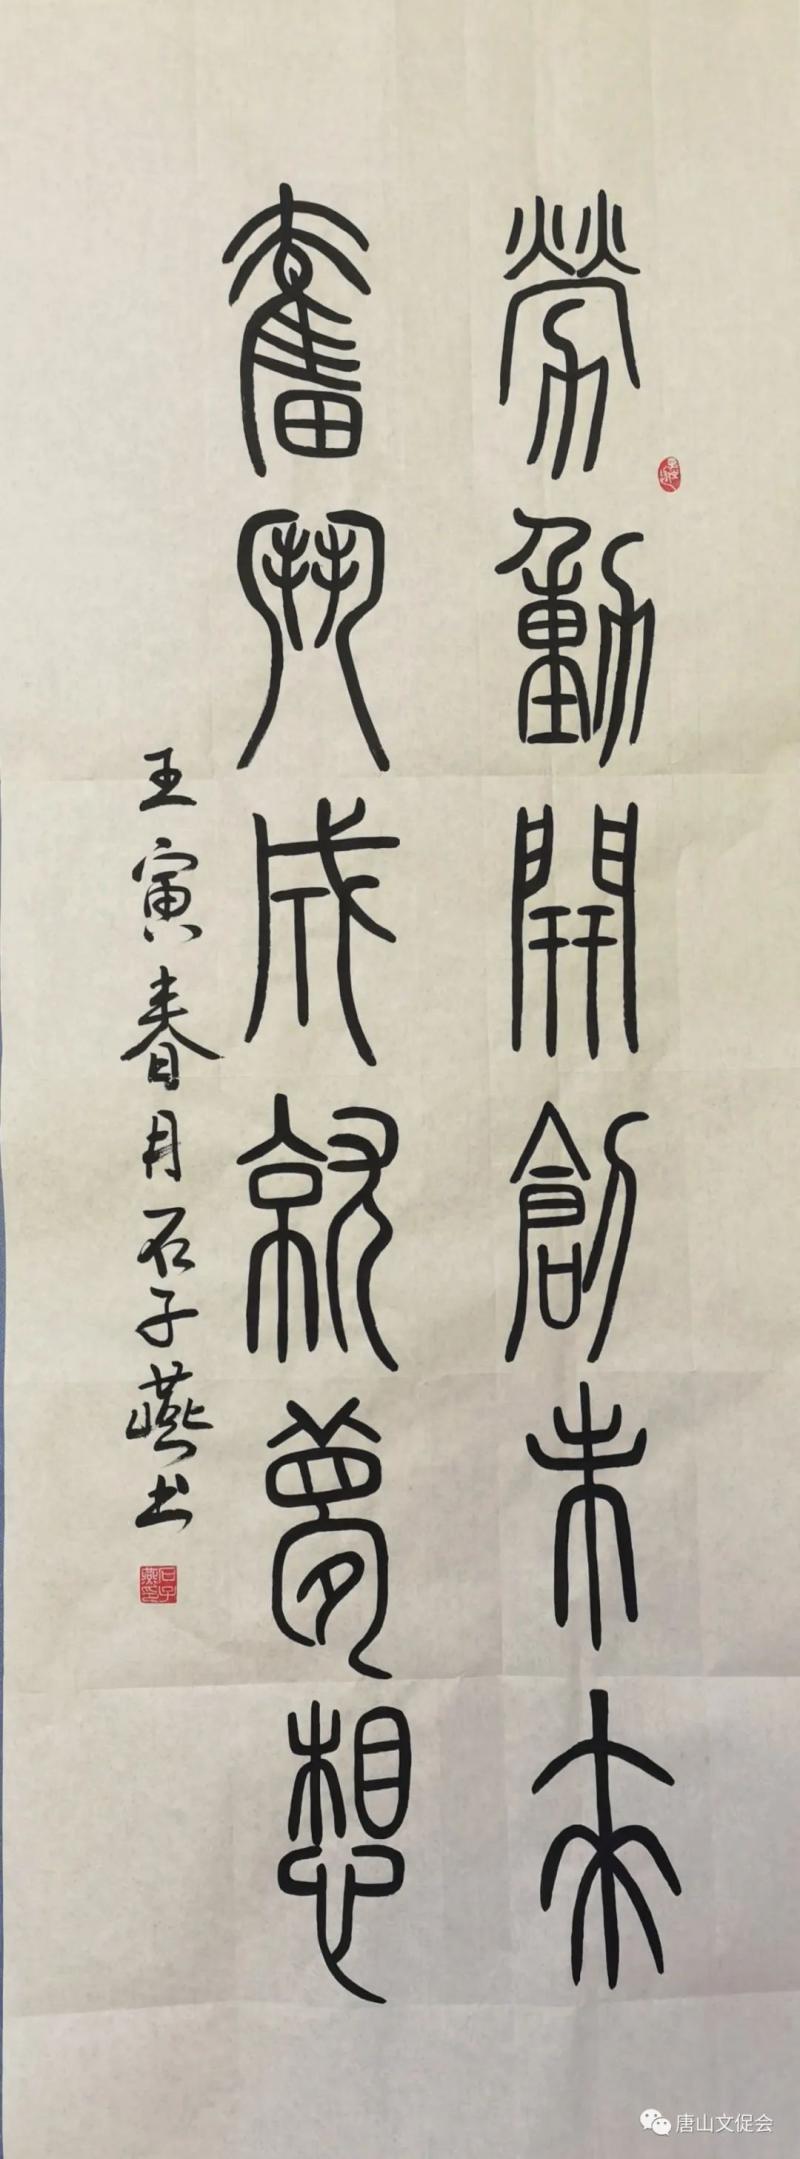 勞動開創未來
奮鬥成就夢想
壬寅春月石子燕书
石子燕印
唐山文促会